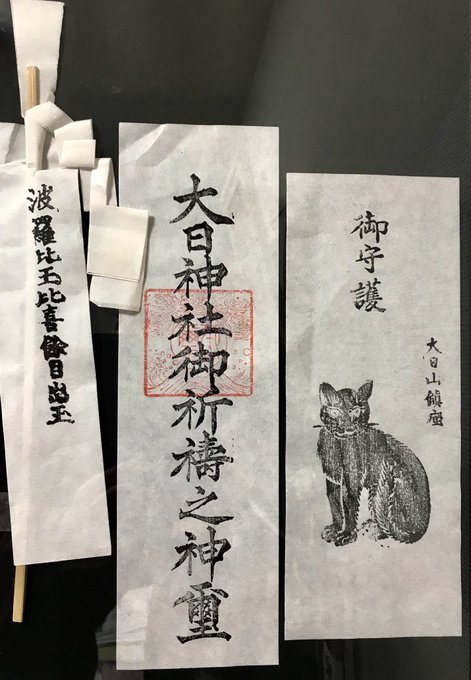 大日山鎮座
御守護
大日神社御祈禱之神璽
波羅比玉比喜餘目出玉